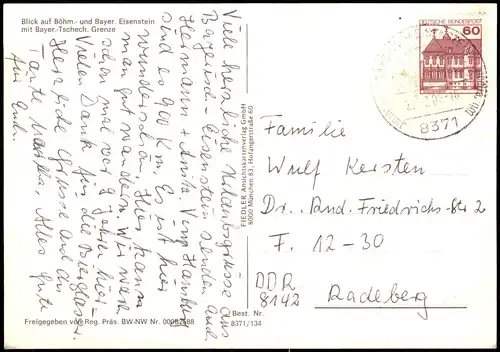 Blick auf Böhm.- und Bayer. Eisenstein
mit Bayer.-Tschech. Grenze
Viele herzliche Urlaubsgrüsse aus
Bayerisch-Eisenstein senden Euch
Hermann + Anita. Von Hamburg
sind es 900 Km. Es ist hier
wunderschön, hier kann
man gut wandern. Wir waren
schon mal vor 9 Jahren hier.
Vielen Dank für die Biergläser.
Herzliche Grüsse auch an
Tante Martha, Alles Gute
für Euch.
Freigegeben von Reg. Präs. BW-NW Nr. 000B2588
FIEDLER Ansichtskartenverlag GmbH
8000 München 83, Hofangerstraße 60
Best. Nr.
8371/134
DEUTSCHE BUNDESPOST
60
8371
Familie
Wulf Kersten
Dr. Friedrichs-Str 2
F. 12-30
DDR
8142
Radeberg